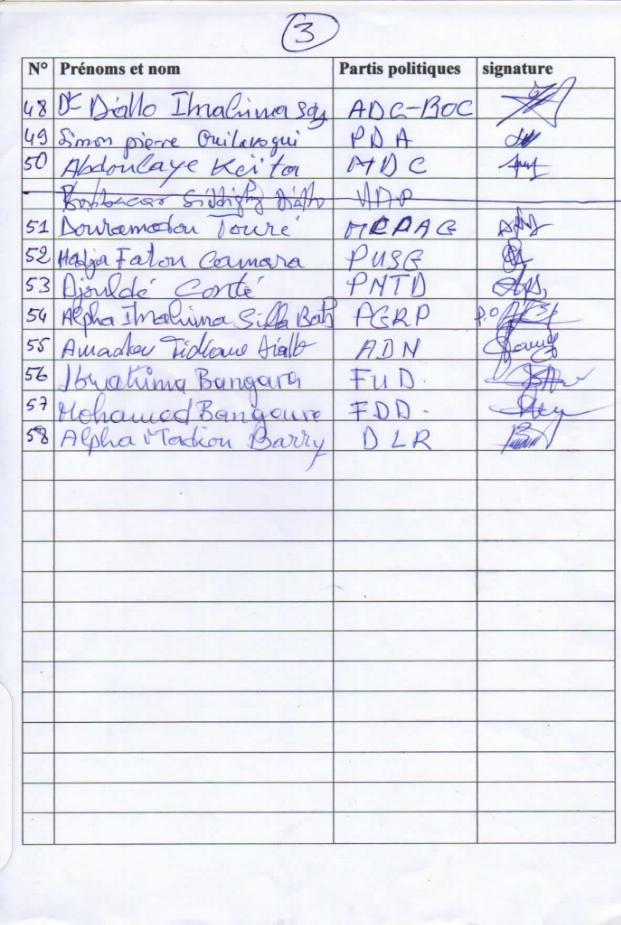 3
N° Prénoms et nom Partis politiques signature
48 Dr Diallo Ibrahima Sory ADC-BOC
49 Simon pierre Ouilavogui PDA
50 Abdoulaye Keita MDC
Diallo
51 Douramodou Touré MRPAG
52 Hadja Fatou Camara PUSG
53 Djouldé Conté PNTD
54 Alpha Ibrahima Silla Bah PGRP P.O
55 Amadou Tidiane Diallo ADN
56 Ibrahima Bangara FUD.
57 Mohamed Bangoura FDD.
58 Alpha Madiou Barry DLR